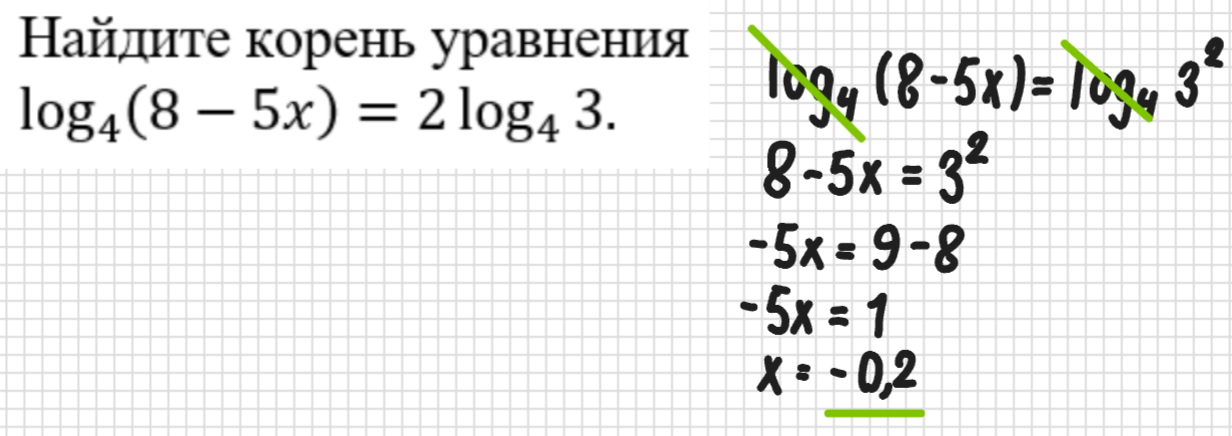 Найдите корень уравнения
log₄(8 − 5x) = 2 log₄ 3.
log₄ (8-5x) = log₄ 3²
8-5x = 3²
-5x = 9-8
-5x = 1
x = -0,2